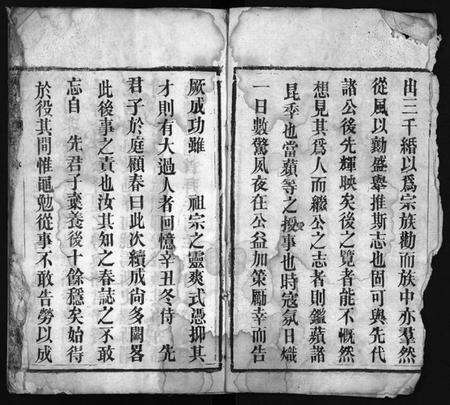 出三千緡以爲宗族勸而族中亦羣然
從風以勷盛舉推斯志也固可與先代
諸公後先輝映矣後之覽者能不慨然
想見其爲人而繼公之志者則鑑蘋諸
昆季也當蘋等之投事也時寇氛日熾
一日數驚夙夜在公益加策勵幸而告
厥成功雖 祖宗之靈爽式憑抑其
才則有大過人者回憶辛丑冬侍 先
君子於庭顧春曰此次續成尚多闕畧
此後事之責也汝其知之春誌之不敢
忘自 先君子棄養後十餘稔矣始得
於役其間惟黽勉從事不敢告勞以成